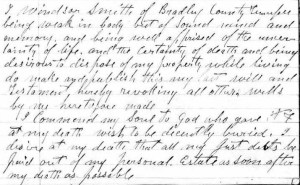 I Windson Smith of Bradley County Tennessee
being weak in body but of sound mind and
memory, and being well apprised of the uncer-
tainty of life, and the certainty of death and being
desirous to dispose of my property while living
do make and publish this my last will and
testament, hereby revoking all others wills
by me heretofore made
I Commend my Soul to God who gave it &
at my death wish to be decently buried. I
desire at my death that all my just debts be
paid out of my personal Estate as soon after
my death as possible